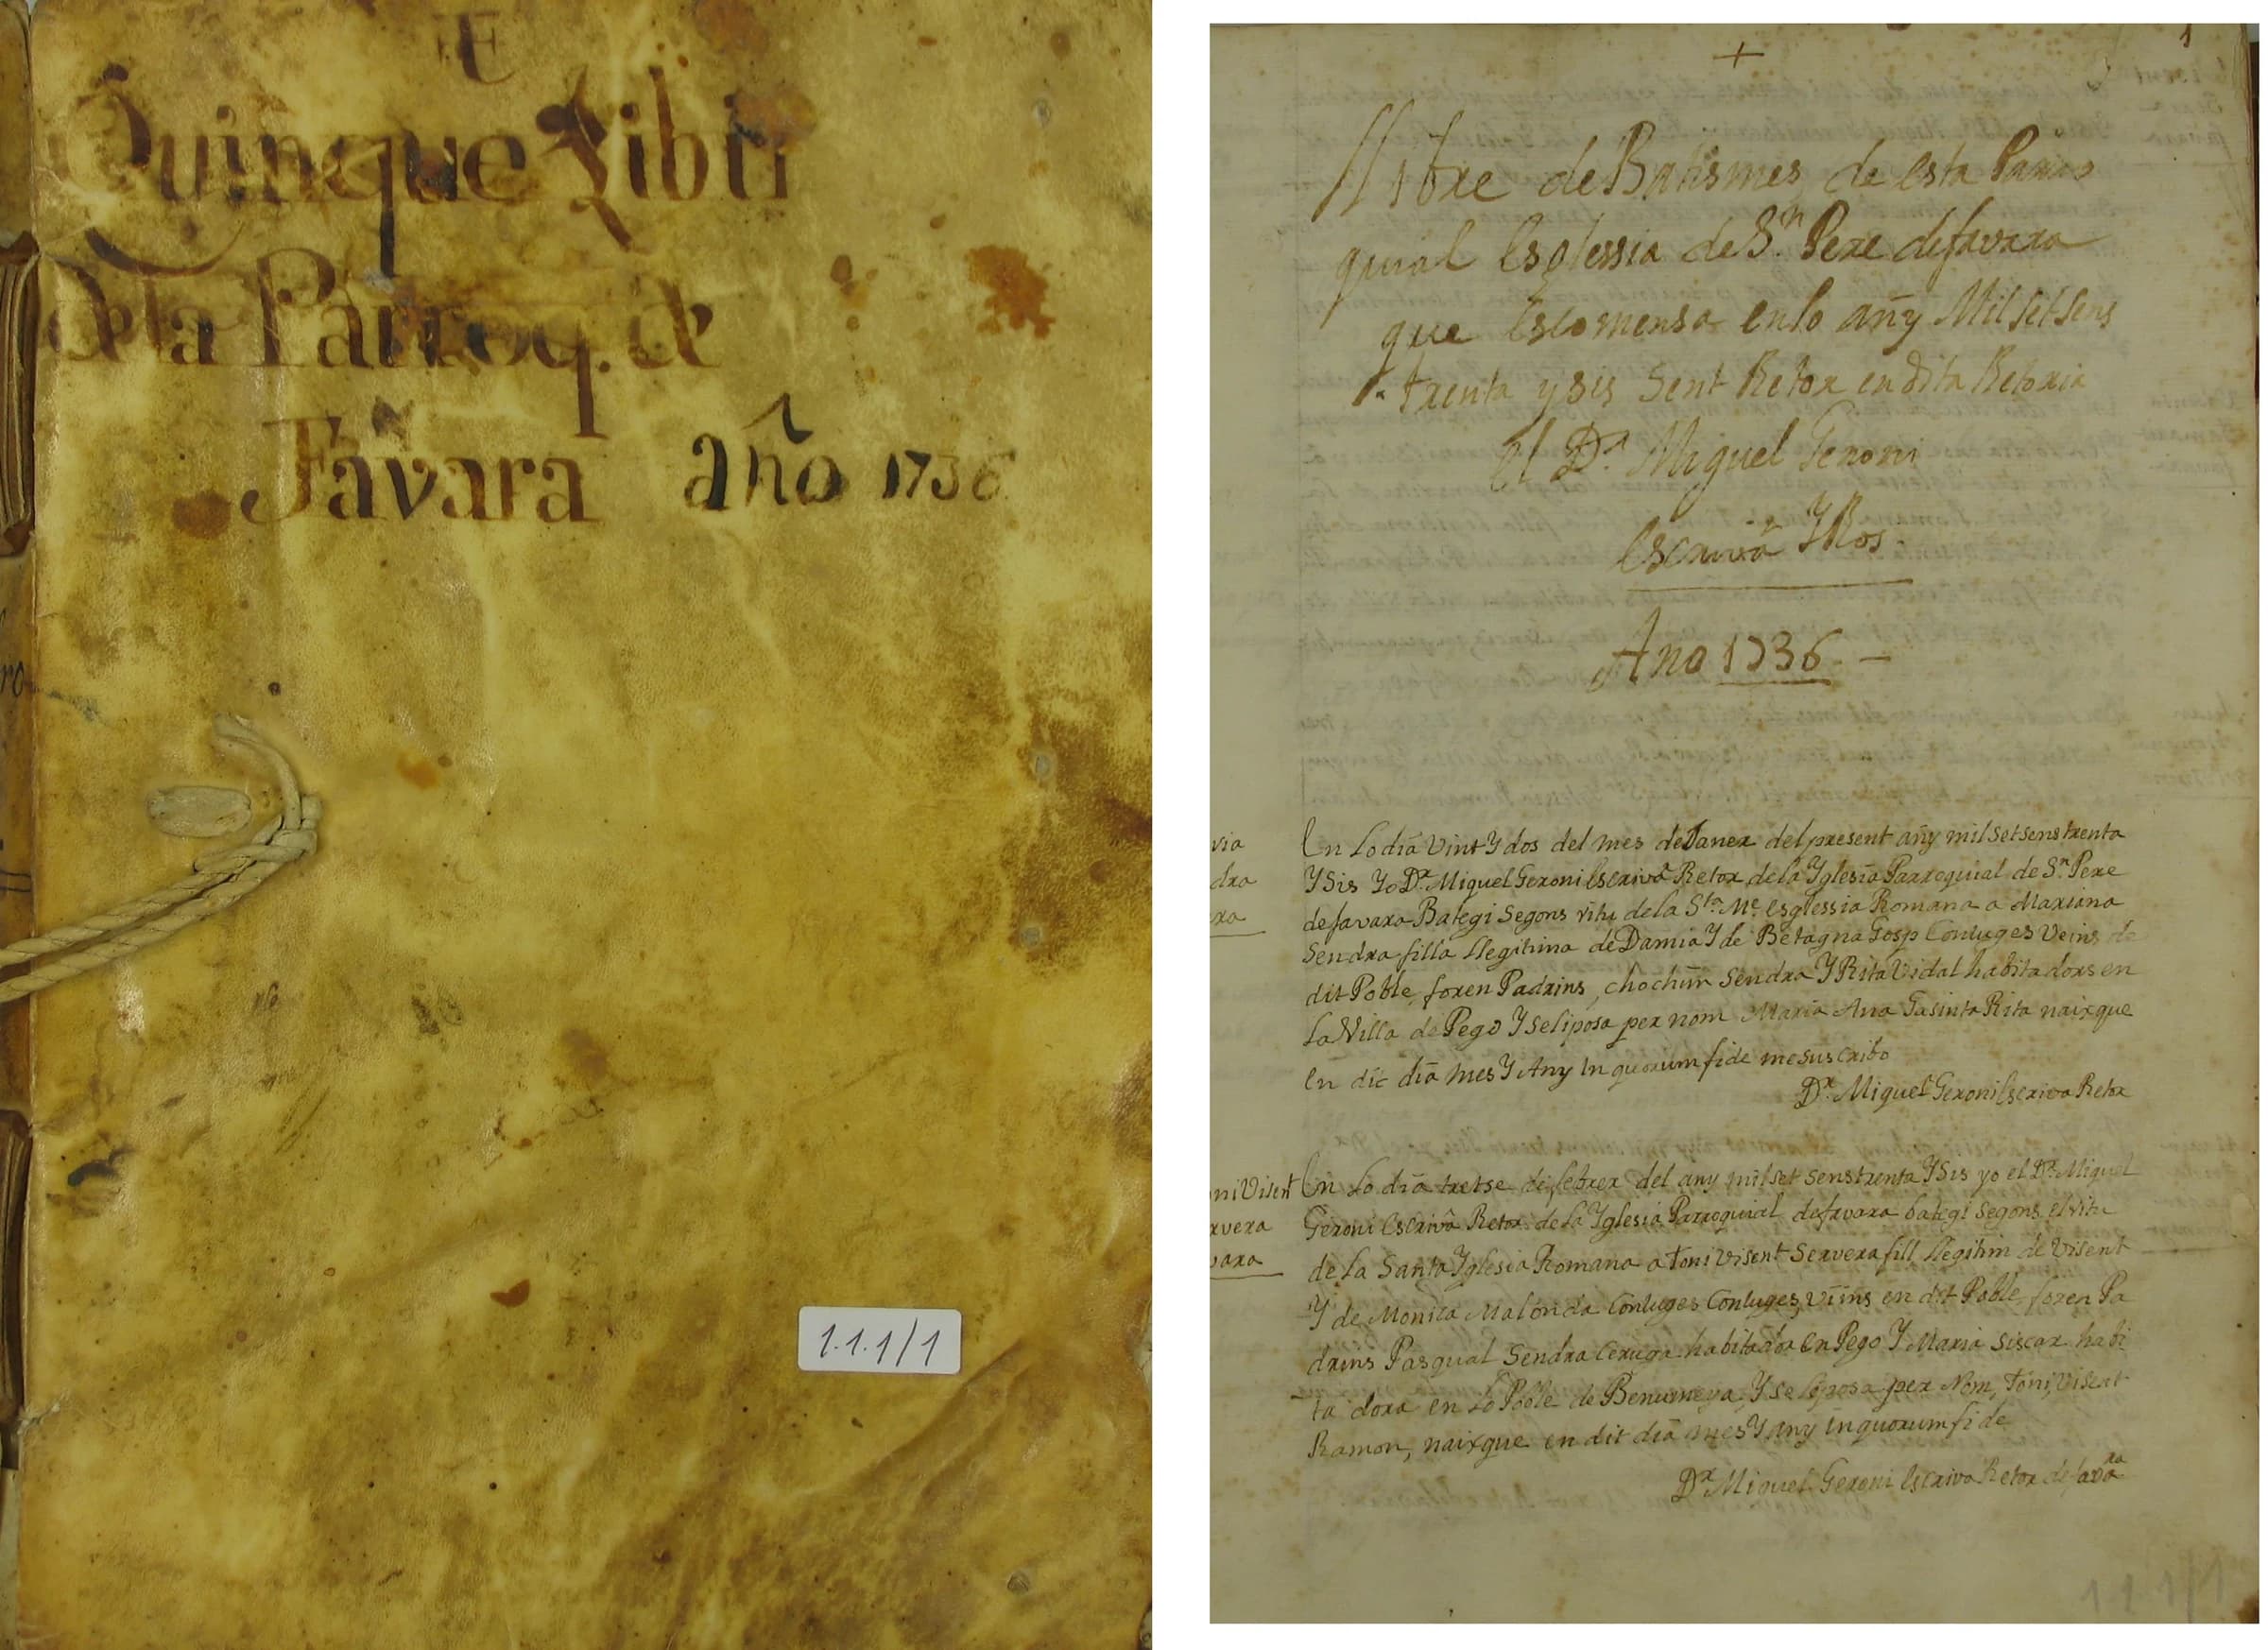 E
Quinque Libri
de la Parroq. de
Favara año 1736
ro
1.1.1/1
1
+
Llibre de Batismes de esta Parro
quial Esglessia de Sn. Pere de favara
que Escomensa en lo añy Mil set Sens
trenta y sis Sent Retor en dita Retoria
el Dr. Miguel Geroni
Escrivá Y Ros.
Ano 1736. -
via
dra
ara
En Lo dia Vint Y dos del mes de Janer del present añy mil set sens trenta
Y Sis Yo Dr. Miguel Geroni Escrivá Retor de la Yglesia Parroquial de Sn. Pere
de favara Bategi Segons ritu de la Sta. Me. Esglessia Romana a Mariana
Sendra filla Llegitima de Damia Y de Betagna Gosp Coniuges Veins de
dit Poble, foren Padrins, chochim Sendra Y Rita Vidal habitadors en
La Villa de Pego Y se li posa per nom Maria Ana Jasinta Rita naixque
En dit dia mes Y Any In quorum fide me suscribo
Dr. Miguel Geroni Escriva Retor
oni Visent
rvera
vara
En Lo dia tretse de febrer del any mil set sens trenta Y Sis yo el Dr. Miguel
Geroni Escrivá Retor de La Yglesia Parroquial de favara bategi segons el ritu
de La Santa Yglesia Romana a Toni Visent Servera fill Llegitim de Visent
Y de Monica Malonda Coniuges Coniuges, Viins en dit Poble, foren Pa
drins Pasqual Sendra Ceruga habitador en Pego Y Maria Siscar habi
ta dora en Lo Poble de Benumeya, Y se li posa per Nom, Toni, Visent
Ramon, naixque en dit dia mes Y any in quorum fide
Dr. Miguel Geroni Escriva Retor de favara
1.1.1/1